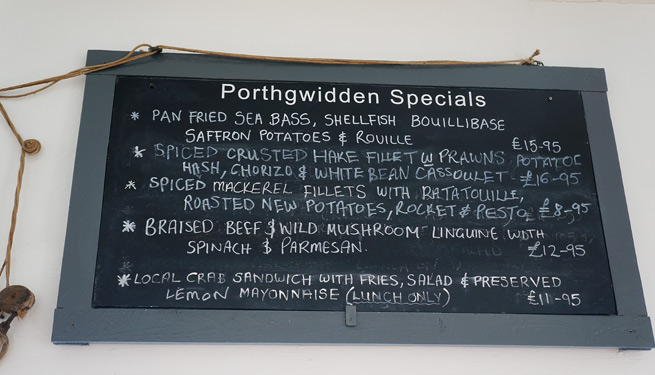 Porthgwidden Specials
* PAN FRIED SEA BASS, SHELLFISH BOUILLIBASE
SAFFRON POTATOES & ROUILLE £15-95
* SPICED CRUSTED HAKE FILLET W PRAWNS POTATOE
HASH, CHORIZO & WHITE BEAN CASSOULET £16-95
* SPICED MACKEREL FILLETS WITH RATATOUILLE,
ROASTED NEW POTATOES, ROCKET & PESTO £8-95
* BRAISED BEEF & WILD MUSHROOM LINGUINE WITH
SPINACH & PARMESAN. £12-95
* LOCAL CRAB SANDWICH WITH FRIES, SALAD & PRESERVED
LEMON MAYONNAISE (LUNCH ONLY) £11-95